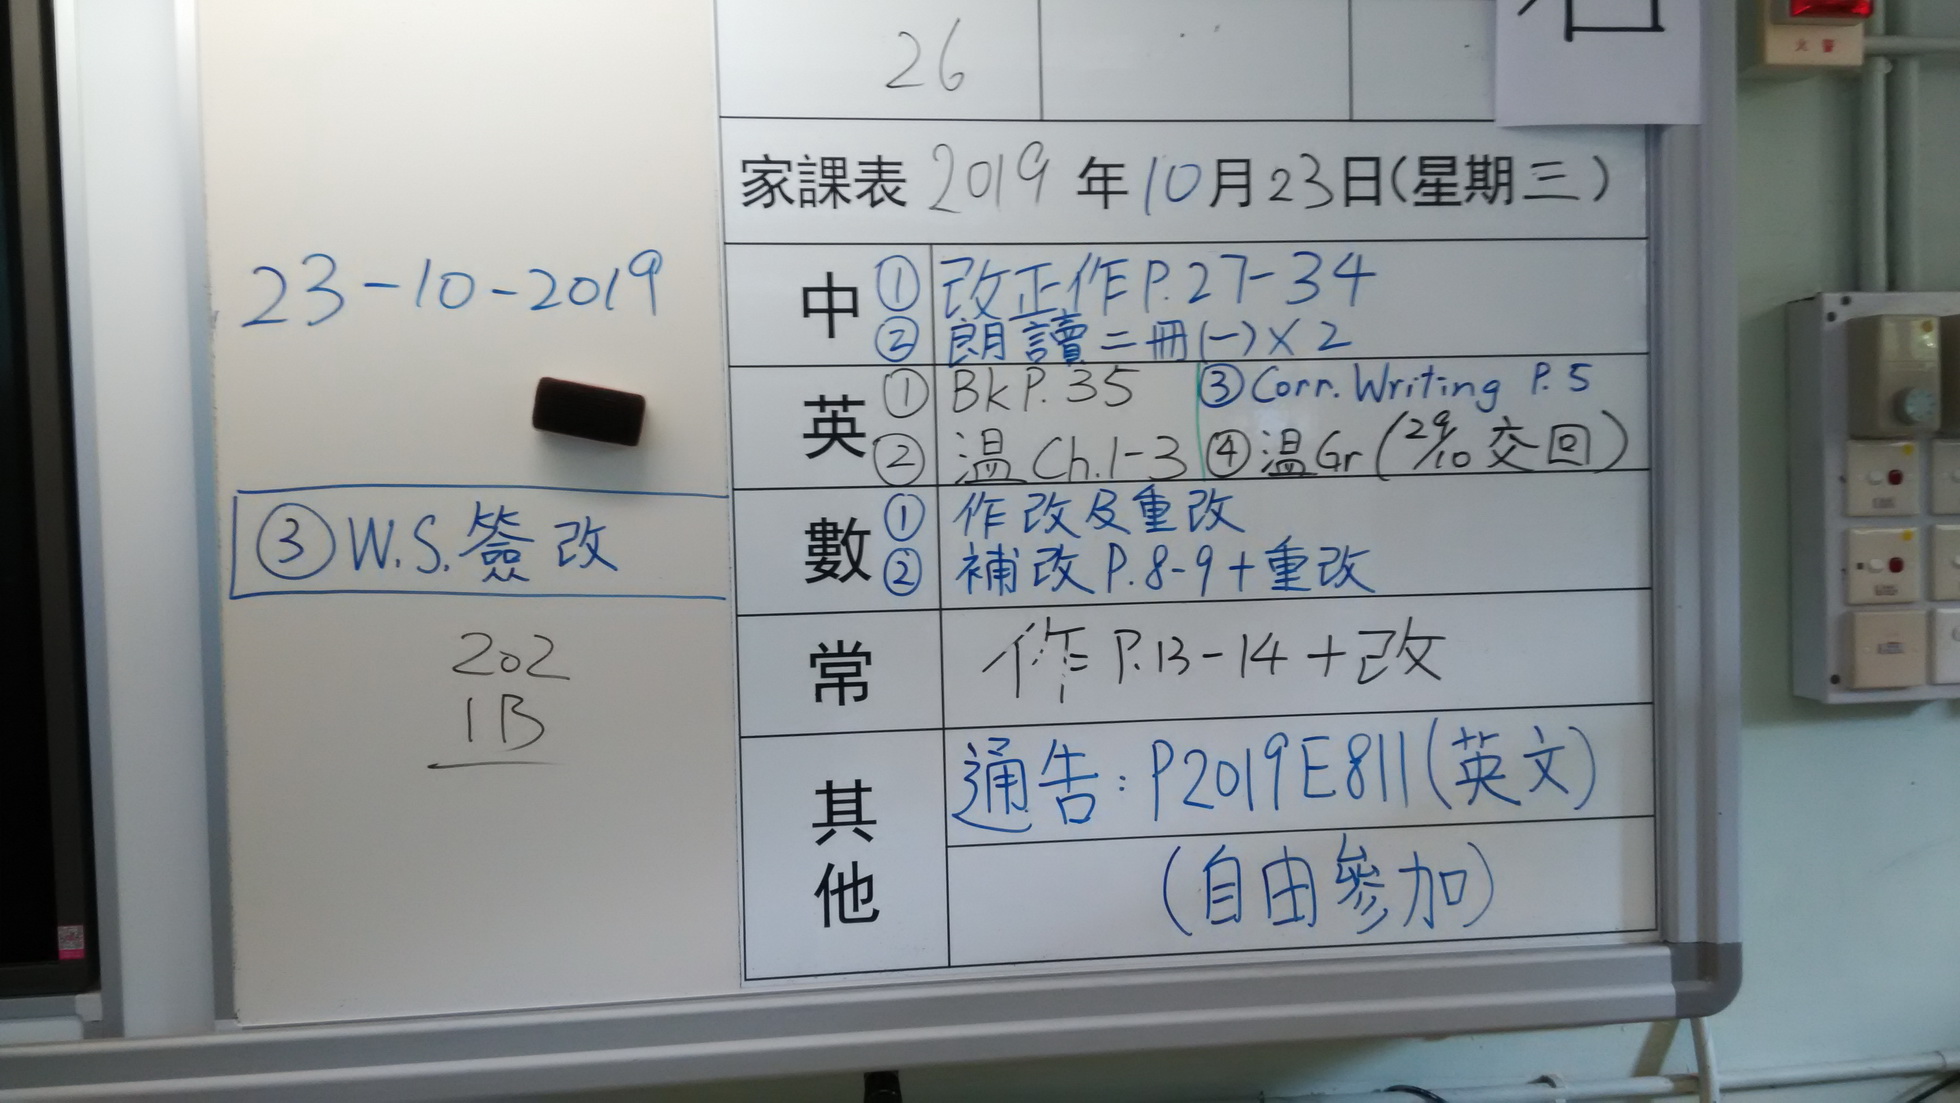 26
家課表 2019 年 10 月 23 日(星期三)
23-10-2019
中 ① 改正作 P.27-34
② 朗讀二冊(一)×2
英 ① Bk P.35 ③ Corr. Writing P.5
② 温 Ch.1-3 ④ 温 Gr (29/10 交回)
數 ① 作改及重改
② 補改 P.8-9+重改
③ W.S. 簽改
常 作 P.13-14+改
202
1B
其他 通告：P2019E811(英文)
(自由參加)
火警